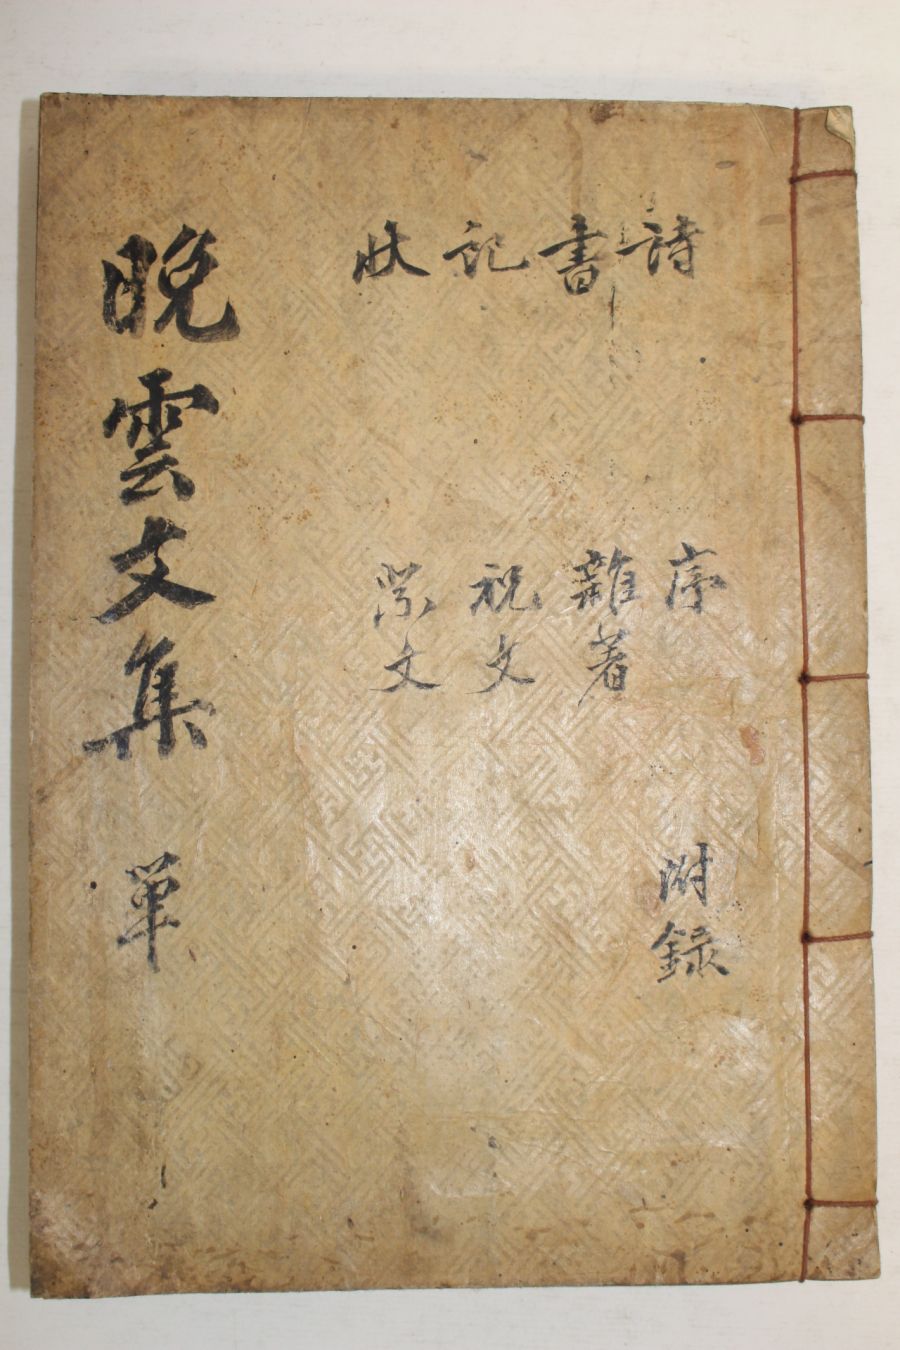 詩 書 記 狀
序 雜著 祝文 祭文
附錄
晚雲文集 單